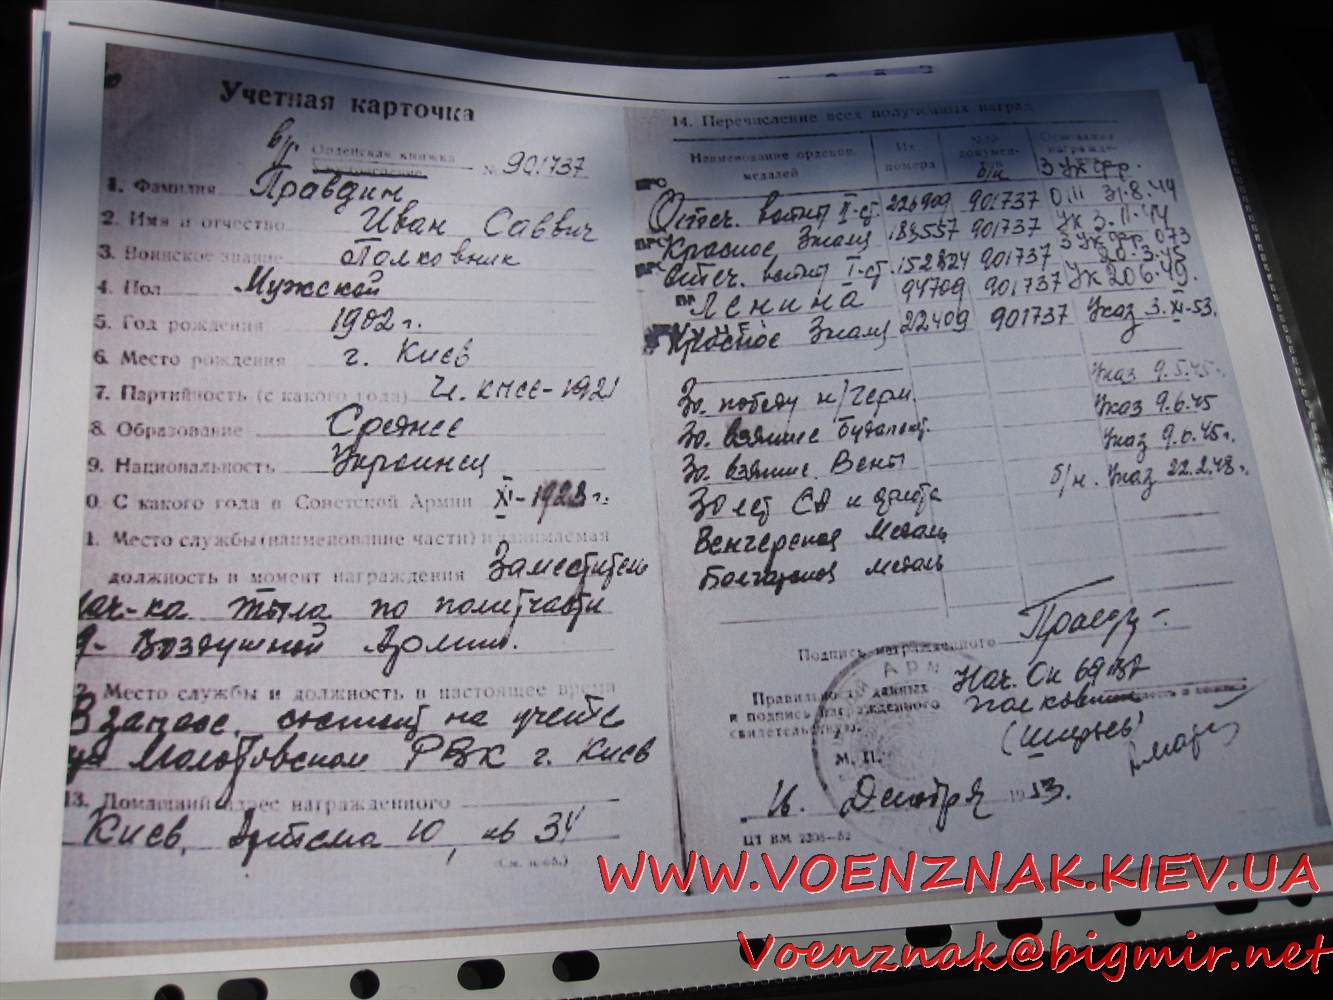 Учетная карточка
вр.
Орденская книжка № 901737
1. Фамилия Правдин
2. Имя и отчество Иван Саввич
3. Воинское звание Полковник
4. Пол Мужской
5. Год рождения 1902 г.
6. Место рождения г. Киев
7. Партийность (с какого года) Чл. КПСС-1921
8. Образование Среднее
9. Национальность Украинец
0. С какого года в Советской Армии XI-1923 г.
1. Место службы (наименование части) и занимаемая
должность в момент награждения Заместитель
нач-ка тыла по политчасти
Воздушной Армии.
2. Место службы и должность в настоящее время
В запасе, состоит на учете
Молотовском РВК г. Киев
13. Домашний адрес награжденного
Киев, Артема 10, кв 34
14. Перечисление всех полученных наград
Наименование орденов, медалей
Их номера
документов
б/н
3 Ук фр.
Отеч. войны II-ст. 226909 901737 0.11 31.8.44
Красное Знамя 183557 901737 Ук 3.11.44
Отеч. войны I-ст. 152824 901737 3 Ук фр. 073 20.3.45
Ленина 94709 901737 Ук 20.6.49.
Красное Знамя 22409 901737 Указ 3.XI-53.
За победу н/Герм. Указ 9.5.45г.
За взятие Будапешт. Указ 9.6.45
За взятие Вены Указ 9.6.45г.
30 лет СА и флота б/н. Указ 22.2.48г.
Венгерская медаль
Болгарская медаль
Подпись награжденного
Правильность данных
и подпись награжденного
свидетельствую:
Нач.
полковник
М. П.
16. Декабря 1953.
ЦТ ВМ 2308—52
WWW.VOENZNAK.KIEV.UA
Voenznak@bigmir.net